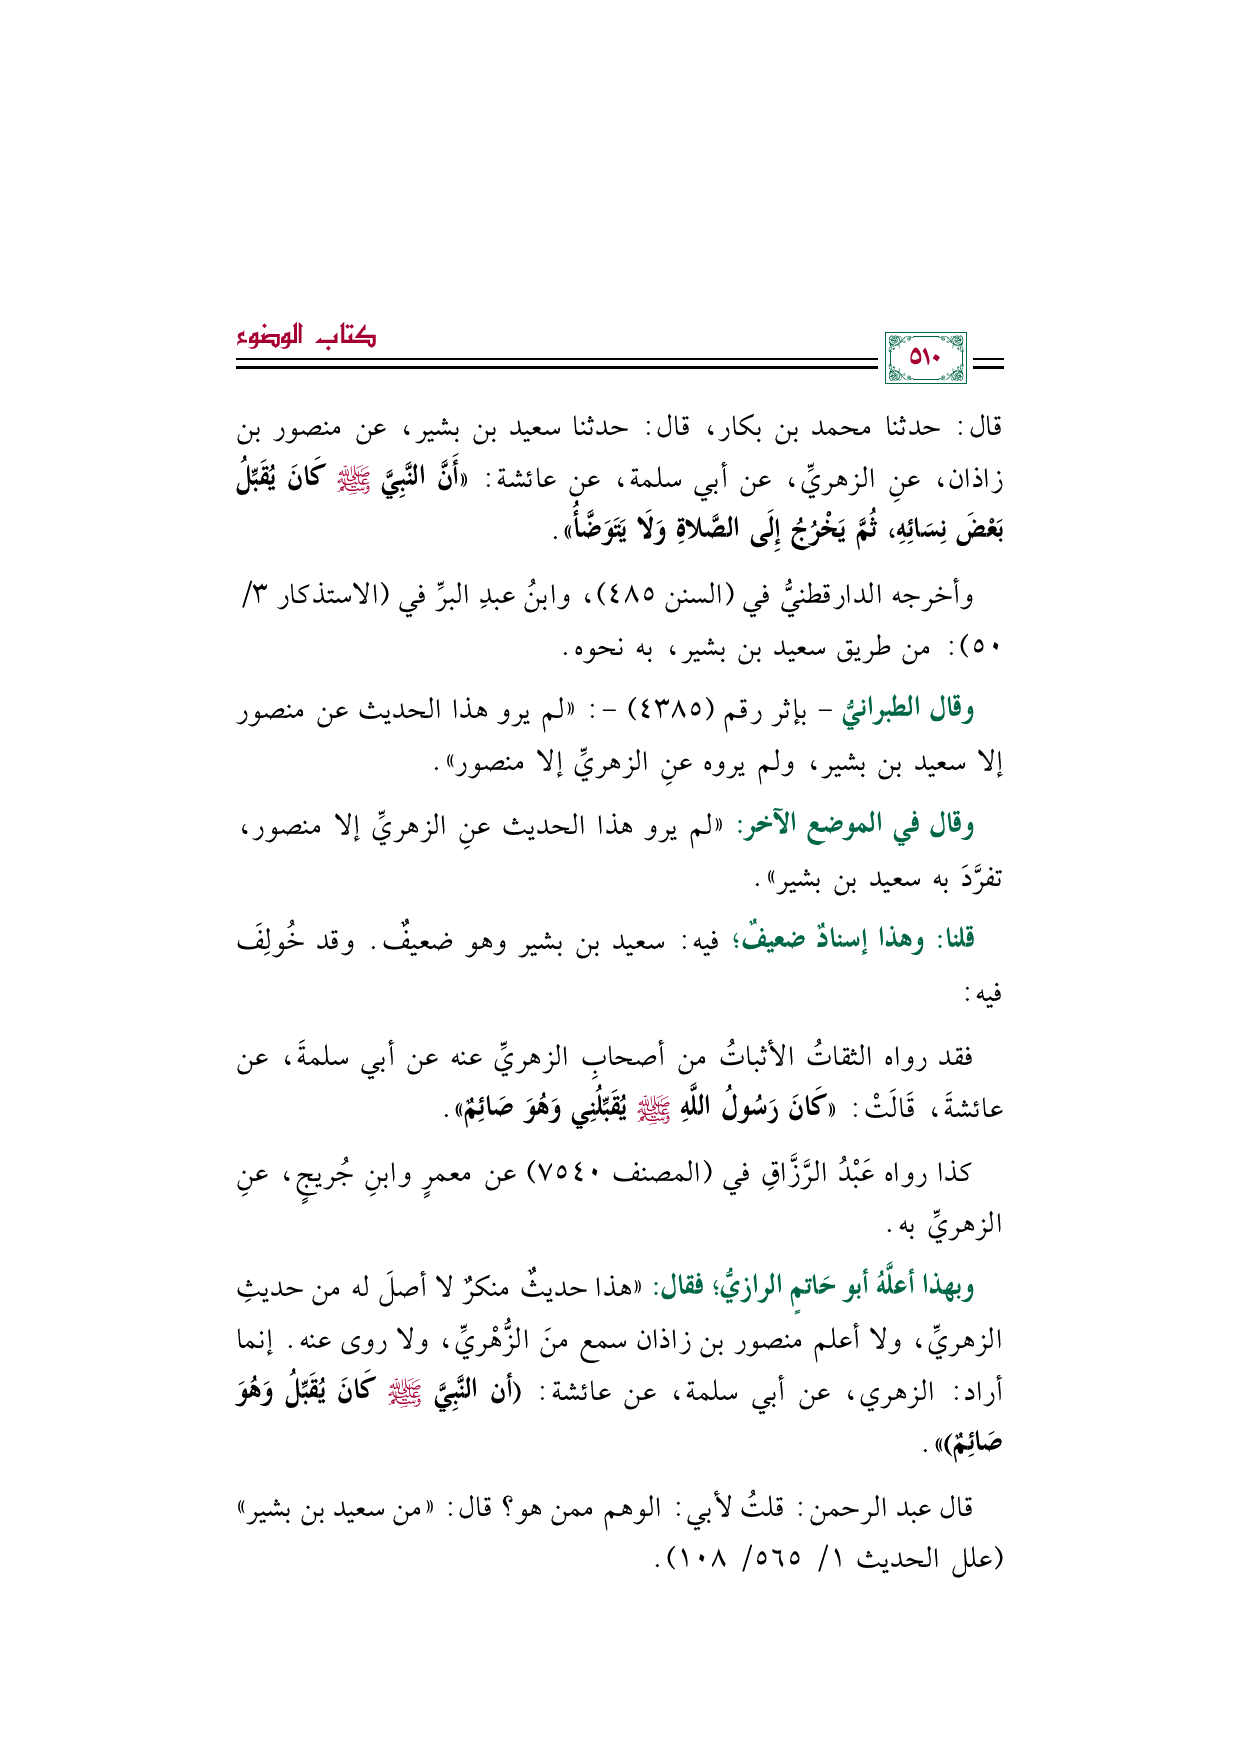 كتاب الوضوء
٥١٠
قال: حدثنا محمد بن بكار، قال: حدثنا سعيد بن بشير، عن منصور بن
زاذان، عنِ الزهريِّ، عن أبي سلمة، عن عائشة: «أَنَّ النَّبِيَّ ﷺ كَانَ يُقَبِّلُ
بَعْضَ نِسَائِهِ، ثُمَّ يَخْرُجُ إِلَى الصَّلاةِ وَلَا يَتَوَضَّأُ».
وأخرجه الدارقطنيُّ في (السنن ٤٨٥)، وابنُ عبدِ البرِّ في (الاستذكار ٣/
٥٠): من طريق سعيد بن بشير، به نحوه.
وقال الطبرانيُّ - بإثر رقم (٤٣٨٥) -: «لم يرو هذا الحديث عن منصور
إلا سعيد بن بشير، ولم يروه عنِ الزهريِّ إلا منصور».
وقال في الموضع الآخر: «لم يرو هذا الحديث عنِ الزهريِّ إلا منصور،
تفرَّدَ به سعيد بن بشير».
قلنا: وهذا إسنادٌ ضعيفٌ؛ فيه: سعيد بن بشير وهو ضعيفٌ. وقد خُولِفَ
فيه:
فقد رواه الثقاتُ الأثباتُ من أصحابِ الزهريِّ عنه عن أبي سلمةَ، عن
عائشةَ، قَالَتْ: «كَانَ رَسُولُ اللَّهِ ﷺ يُقَبِّلُنِي وَهُوَ صَائِمٌ».
كذا رواه عَبْدُ الرَّزَّاقِ في (المصنف ٧٥٤٠) عن معمرٍ وابنِ جُريجٍ، عنِ
الزهريِّ به.
وبهذا أعلَّهُ أبو حَاتمٍ الرازيُّ؛ فقال: «هذا حديثٌ منكرٌ لا أصلَ له من حديثِ
الزهريِّ، ولا أعلم منصور بن زاذان سمع منَ الزُّهْريِّ، ولا روى عنه. إنما
أراد: الزهري، عن أبي سلمة، عن عائشة: (أن النَّبِيَّ ﷺ كَانَ يُقَبِّلُ وَهُوَ
صَائِمٌ)».
قال عبد الرحمن: قلتُ لأبي: الوهم ممن هو؟ قال: «من سعيد بن بشير»
(علل الحديث ١/ ٥٦٥/ ١٠٨).